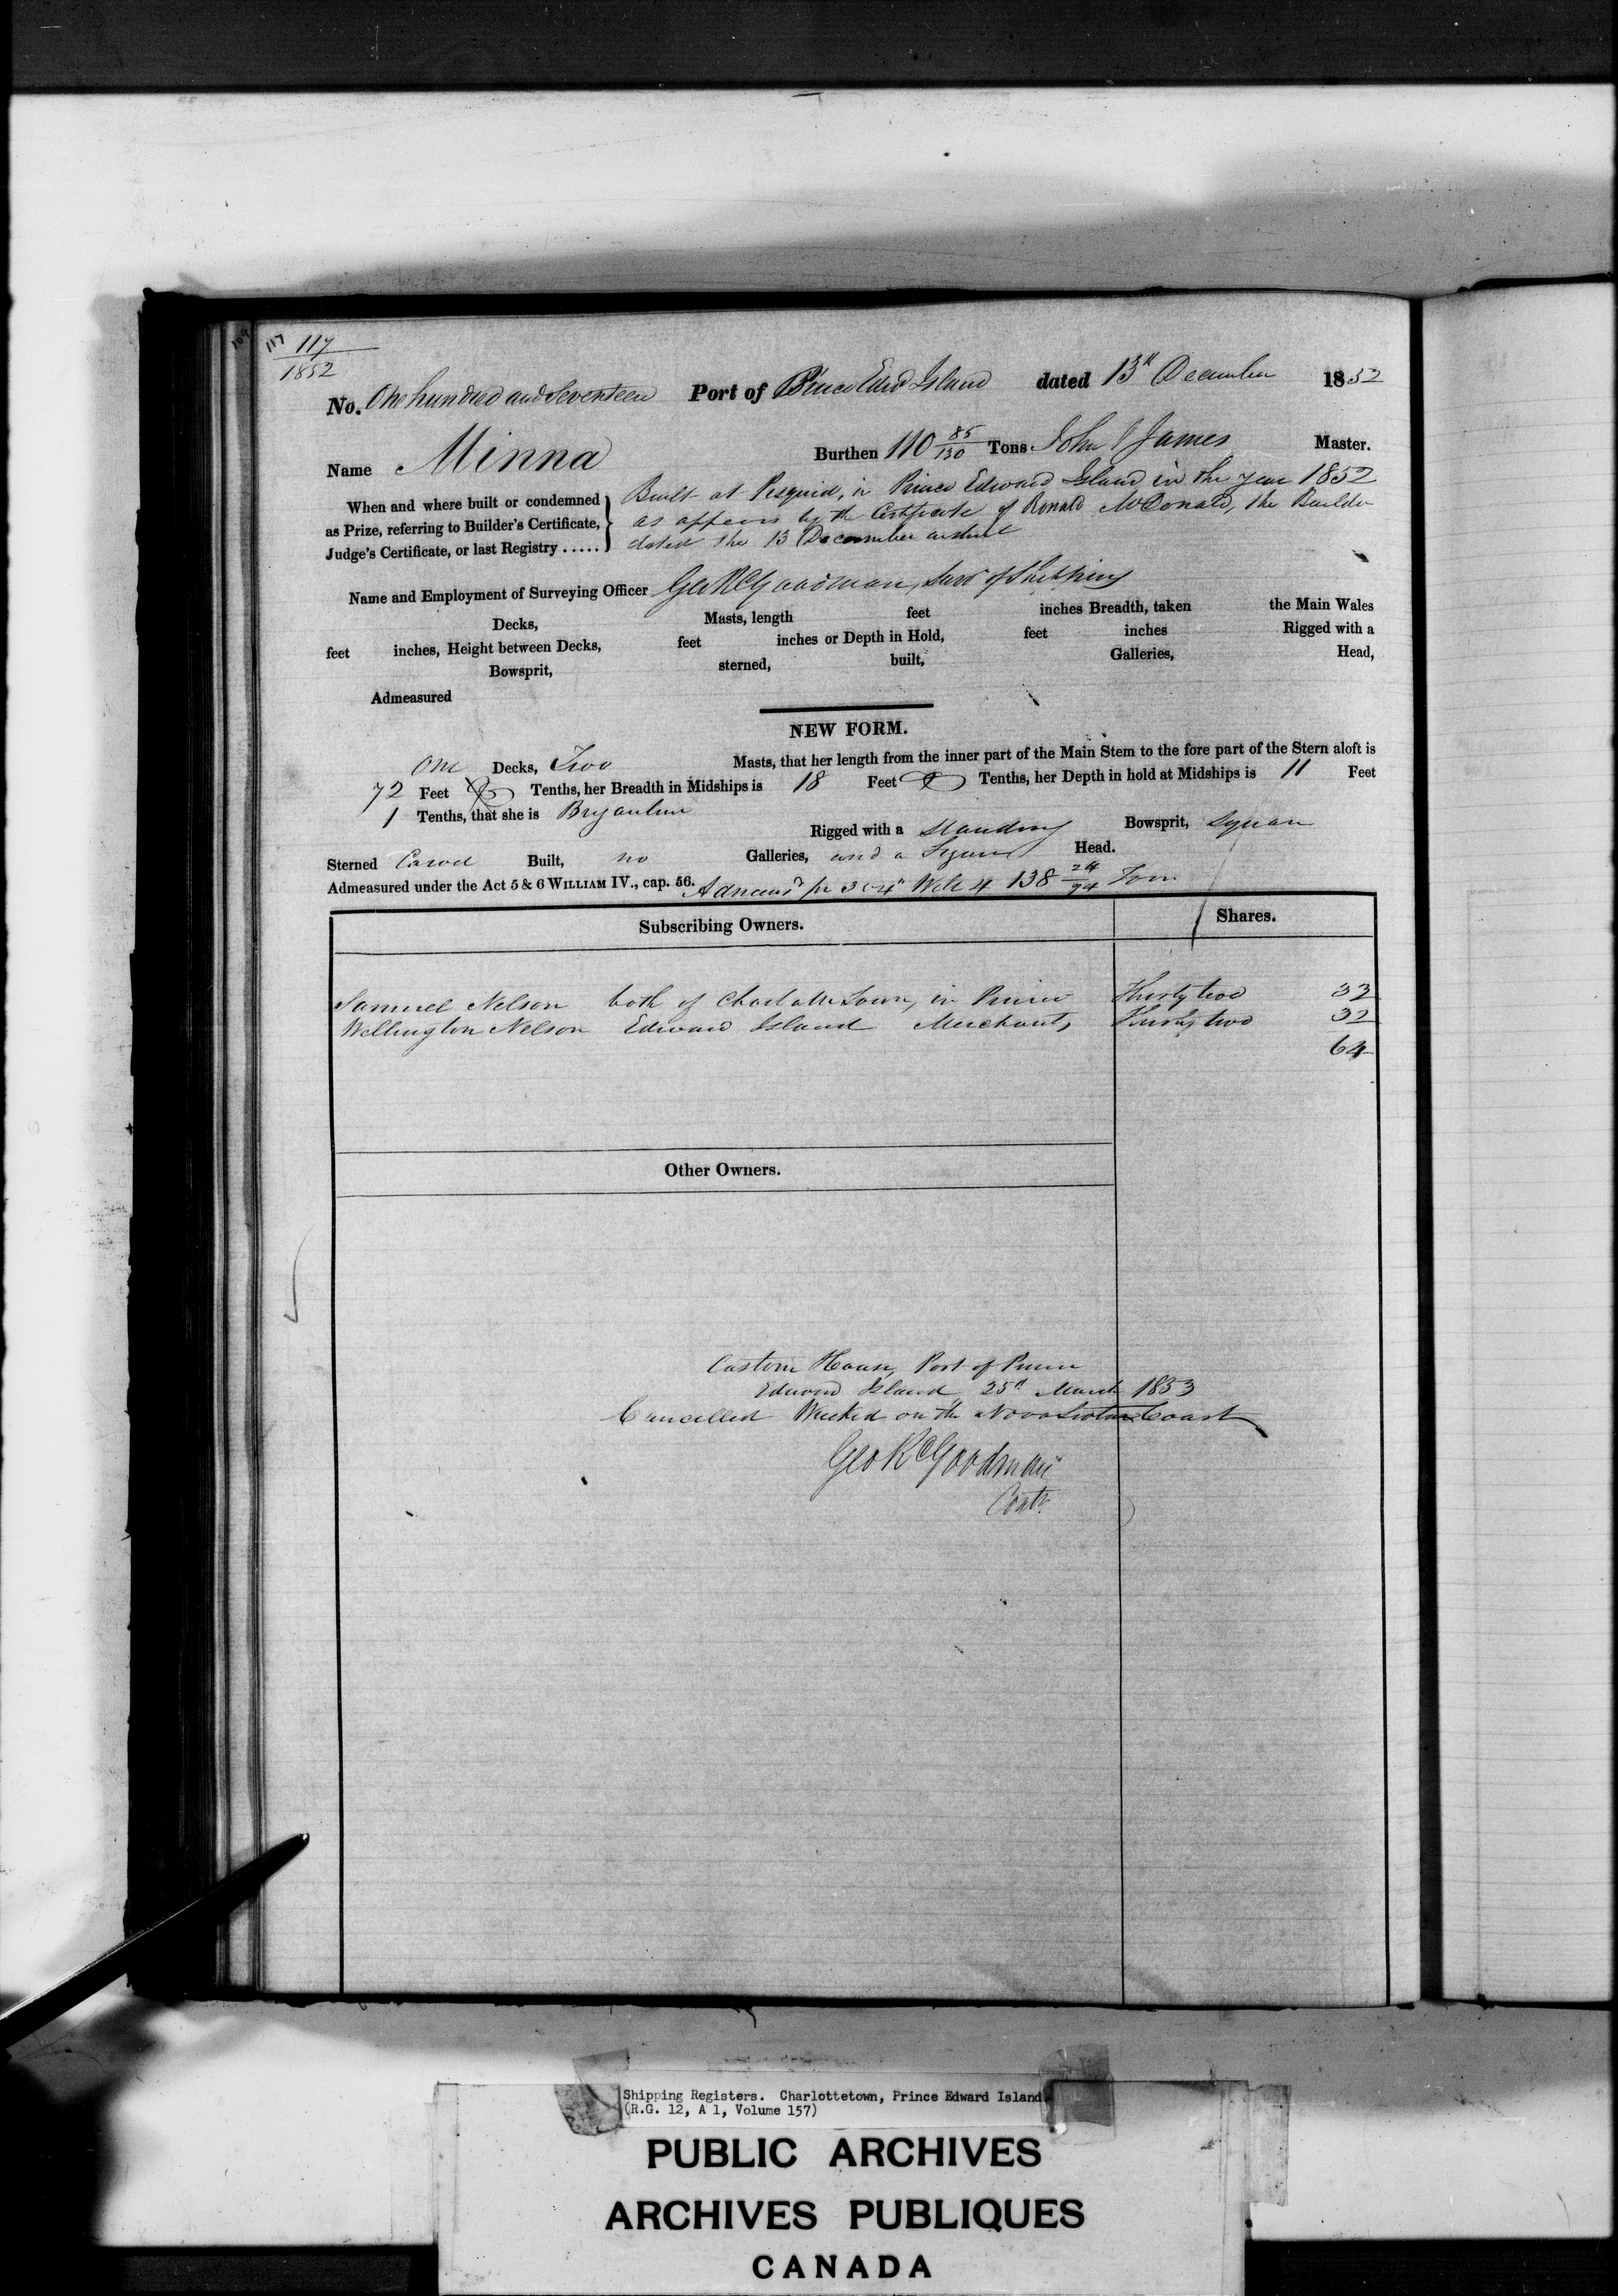 109 117 117
1852
No. One hundred and Seventeen Port of Prince Edwd Island dated 13th December 1852
Name Minna Burthen 110 85/130 Tons John James Master.
When and where built or condemned as Prize, referring to Builder's Certificate, Judge's Certificate, or last Registry .....
Built at Pisquid, in Prince Edward Island in the year 1852
as appears by the Certificate of Ronald McDonald, the Builder
dated the 13 December instant
Name and Employment of Surveying Officer Geo R Goodman, Surv of Shipping
Decks, Masts, length feet inches Breadth, taken the Main Wales
feet inches, Height between Decks, feet inches or Depth in Hold, feet inches Rigged with a
Bowsprit, sterned, built, Galleries, Head,
Admeasured
NEW FORM.
One Decks, Two Masts, that her length from the inner part of the Main Stem to the fore part of the Stern aloft is
72 Feet Tenths, her Breadth in Midships is 18 Feet Tenths, her Depth in hold at Midships is 11 Feet
1 Tenths, that she is Brigantine Rigged with a Standing Bowsprit, Square
Sterned Carvel Built, no Galleries, and a Figure Head.
Admeasured under the Act 5 & 6 WILLIAM IV., cap. 56. Admeasd pr 3 & 4th Will 4 138 24/94 Tons
Subscribing Owners. Shares.
Samuel Nelson both of Charlotte Town, in Prince Thirty two 32
Wellington Nelson Edward Island Merchants Thirty two 32
64
Other Owners.
Custom House, Port of Prince
Edward Island 25th March 1853
Cancelled Wrecked on the Nova Scotia Coast
Geo R Goodman
Contr
Shipping Registers. Charlottetown, Prince Edward Island
(R.G. 12, A 1, Volume 157)
PUBLIC ARCHIVES
ARCHIVES PUBLIQUES
CANADA